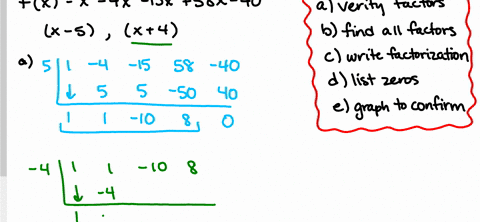 f(x) = x⁴ - 4x³ - 15x² + 58x - 40
(x-5) , (x+4)
a) 5 | 1 -4 -15 58 -40
↓ 5 5 -50 40
1 1 -10 8 0
-4 | 1 1 -10 8
↓ -4
1
a) verify factors
b) find all factors
c) write factorization
d) list zeros
e) graph to confirm